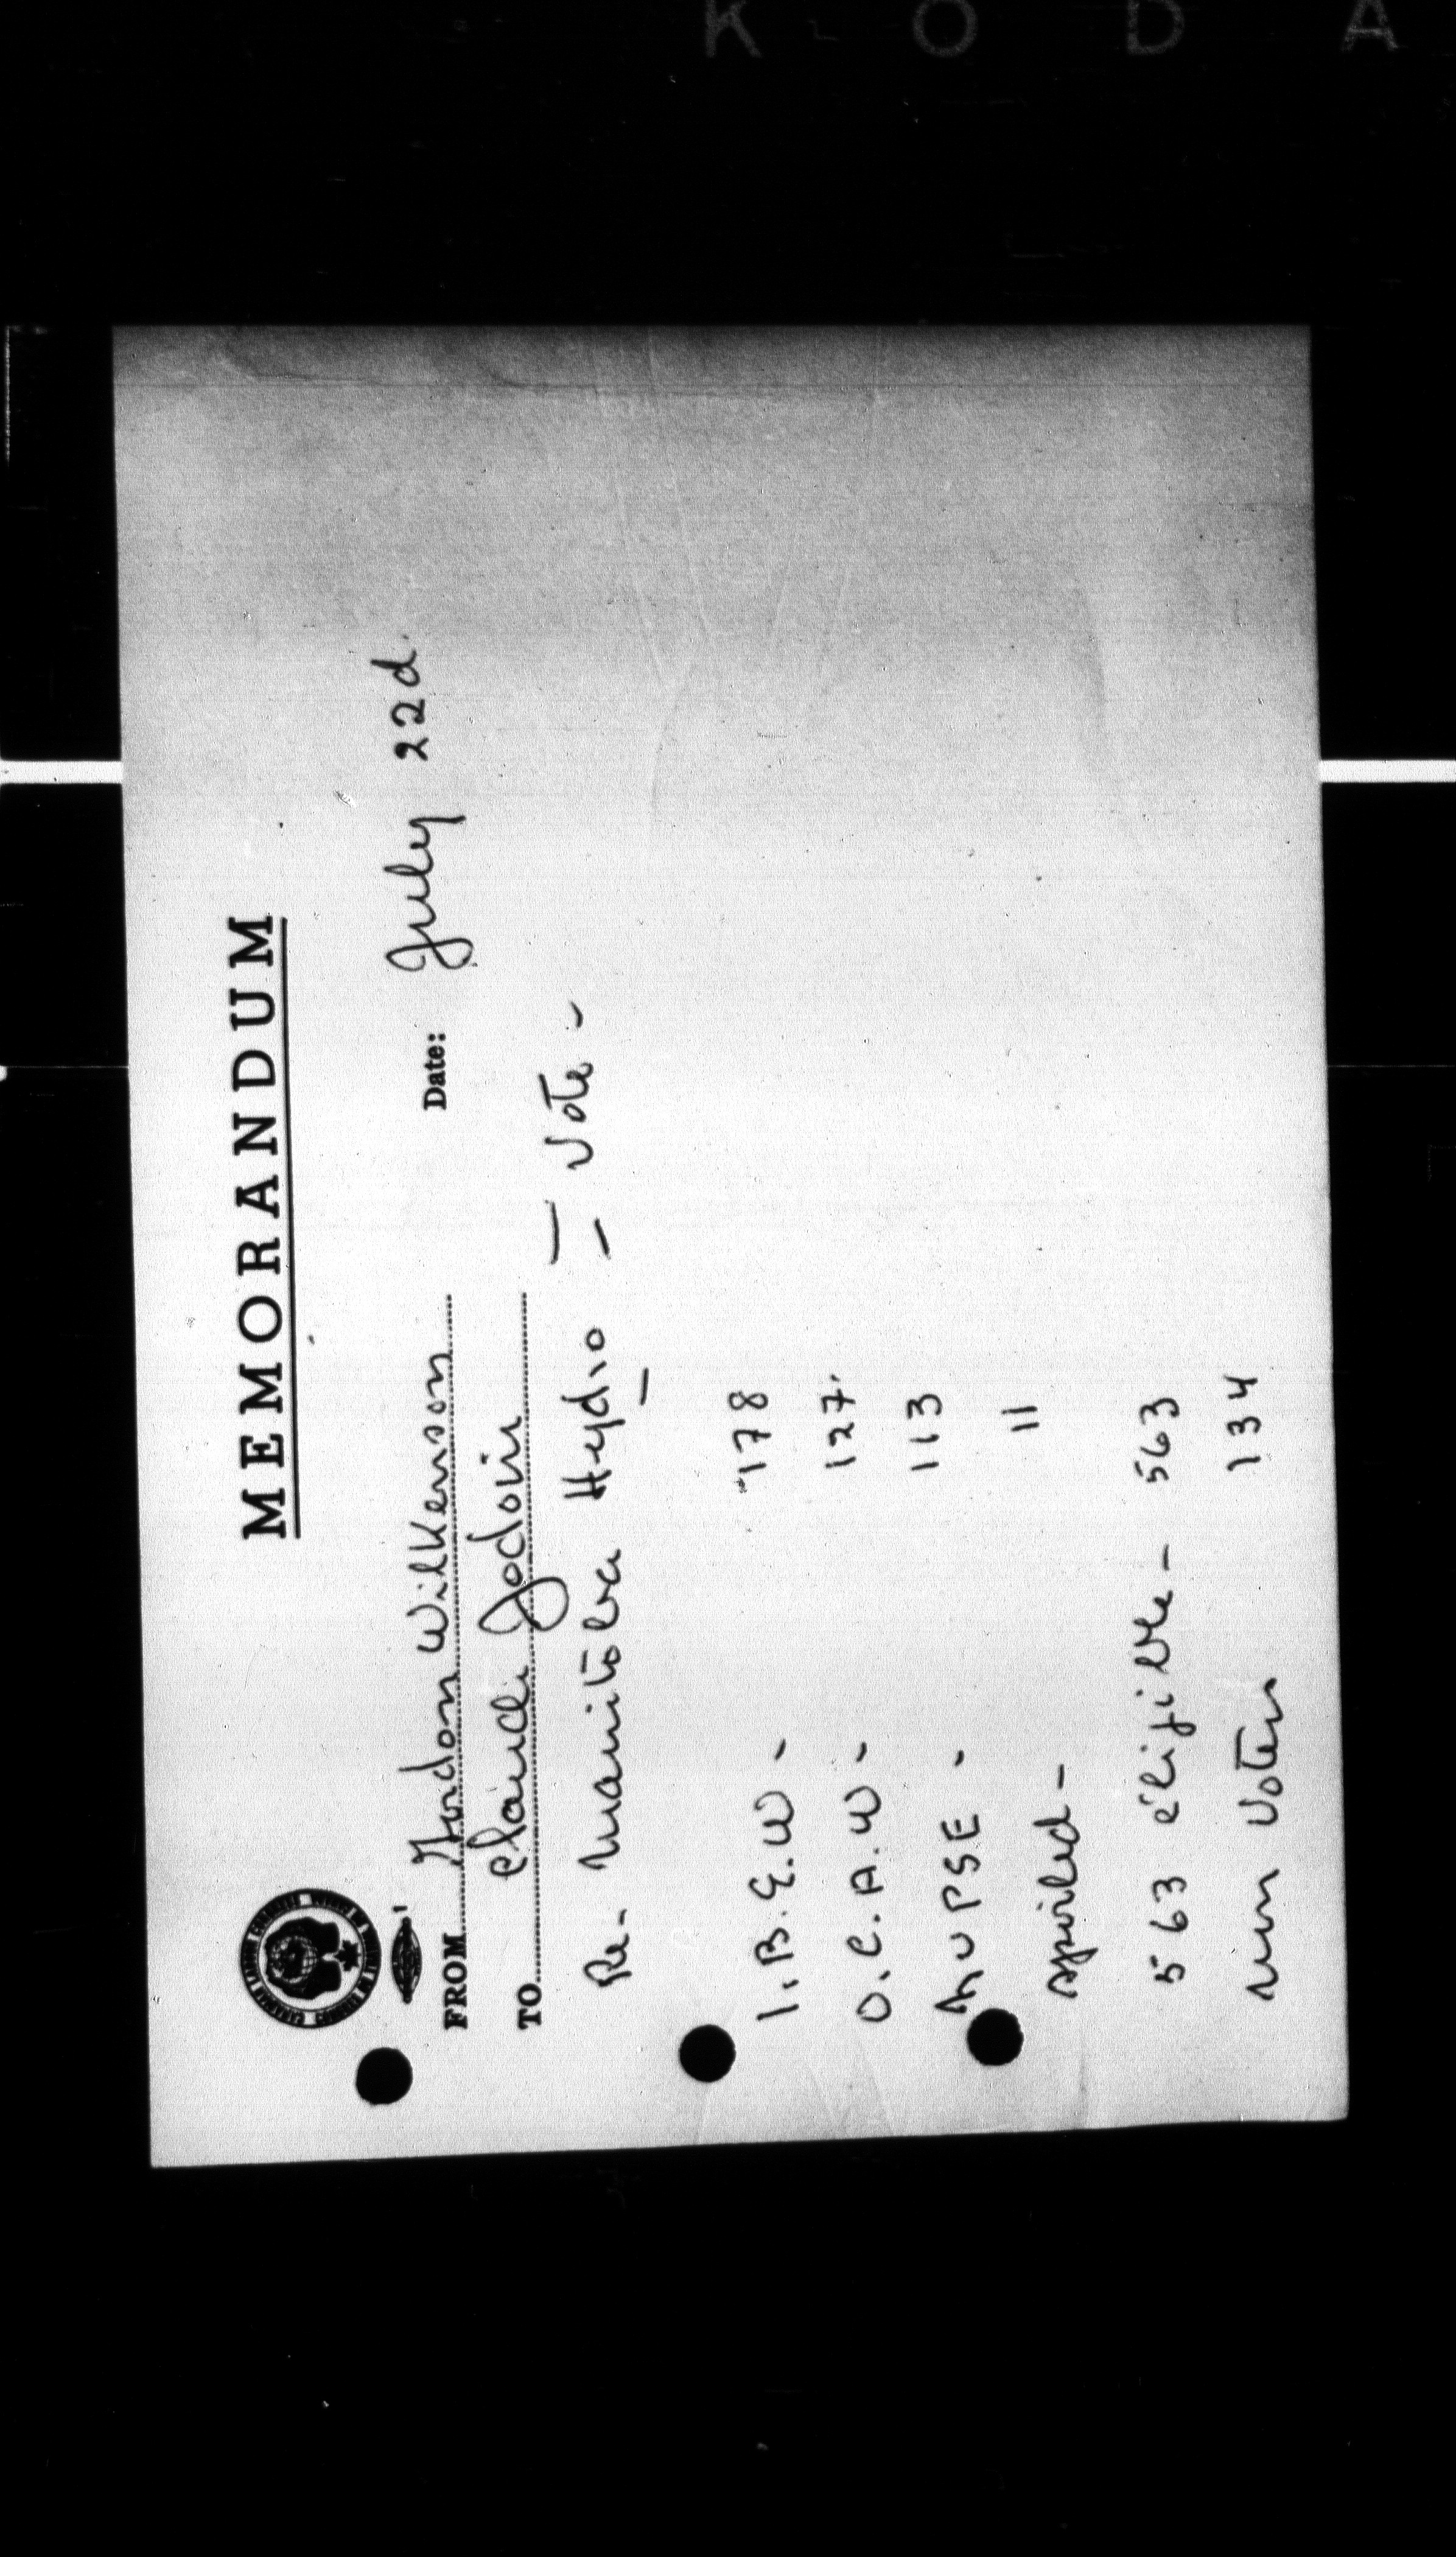 K O D A
MEMORANDUM
FROM Gordon Wilkenson Date: July 22d.
TO Claude Jodoin
Re- Manitoba Hydro — Vote -
I.B.E.W - 178
O.C.A.W - 127.
NUPSE - 113
spoiled - 11
563 eligible - 563
num Voters 134